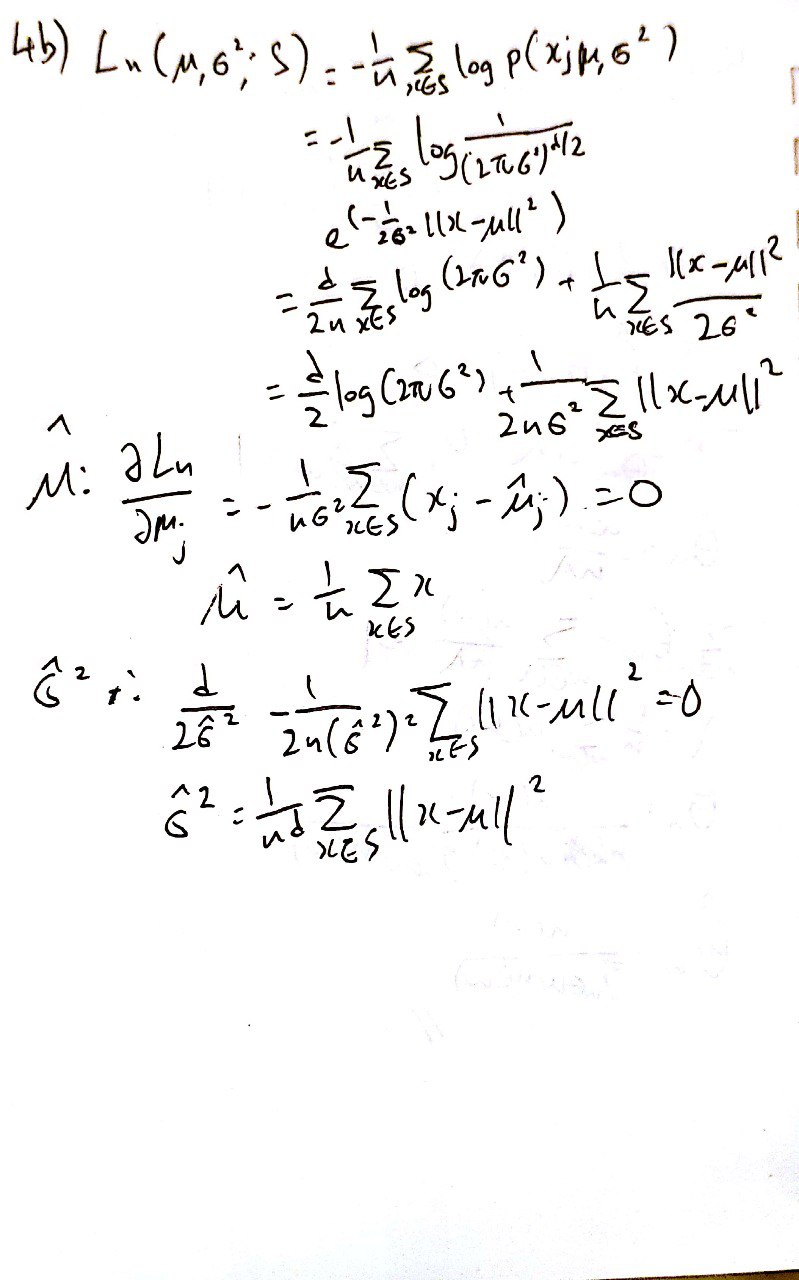 4b) Ln(μ, σ²; S) = -1/n Σ_{x∈S} log p(x; μ, σ²)
= -1/n Σ_{x∈S} log 1/(2πσ²)^{d/2}
e^(-1/2σ² ||x-μ||²)
= d/2n Σ_{x∈S} log (2πσ²) + 1/n Σ_{x∈S} ||x-μ||²/2σ²
= d/2 log(2πσ²) + 1/2nσ² Σ_{x∈S} ||x-μ||²
μ̂: ∂Ln/∂μ_j = -1/nσ² Σ_{x∈S} (x_j - μ̂_j) = 0
μ̂ = 1/n Σ_{x∈S} x
σ̂²: d/2σ̂² - 1/2n(σ̂²)² Σ_{x∈S} ||x-μ||² = 0
σ̂² = 1/nd Σ_{x∈S} ||x-μ||²